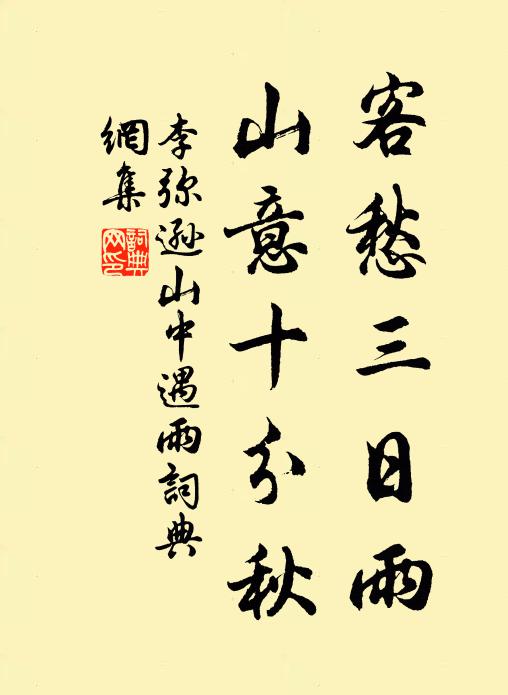 客愁三日雨
山意十分秋
李弥遜山中遇雨詞典
網集
詞典
网印